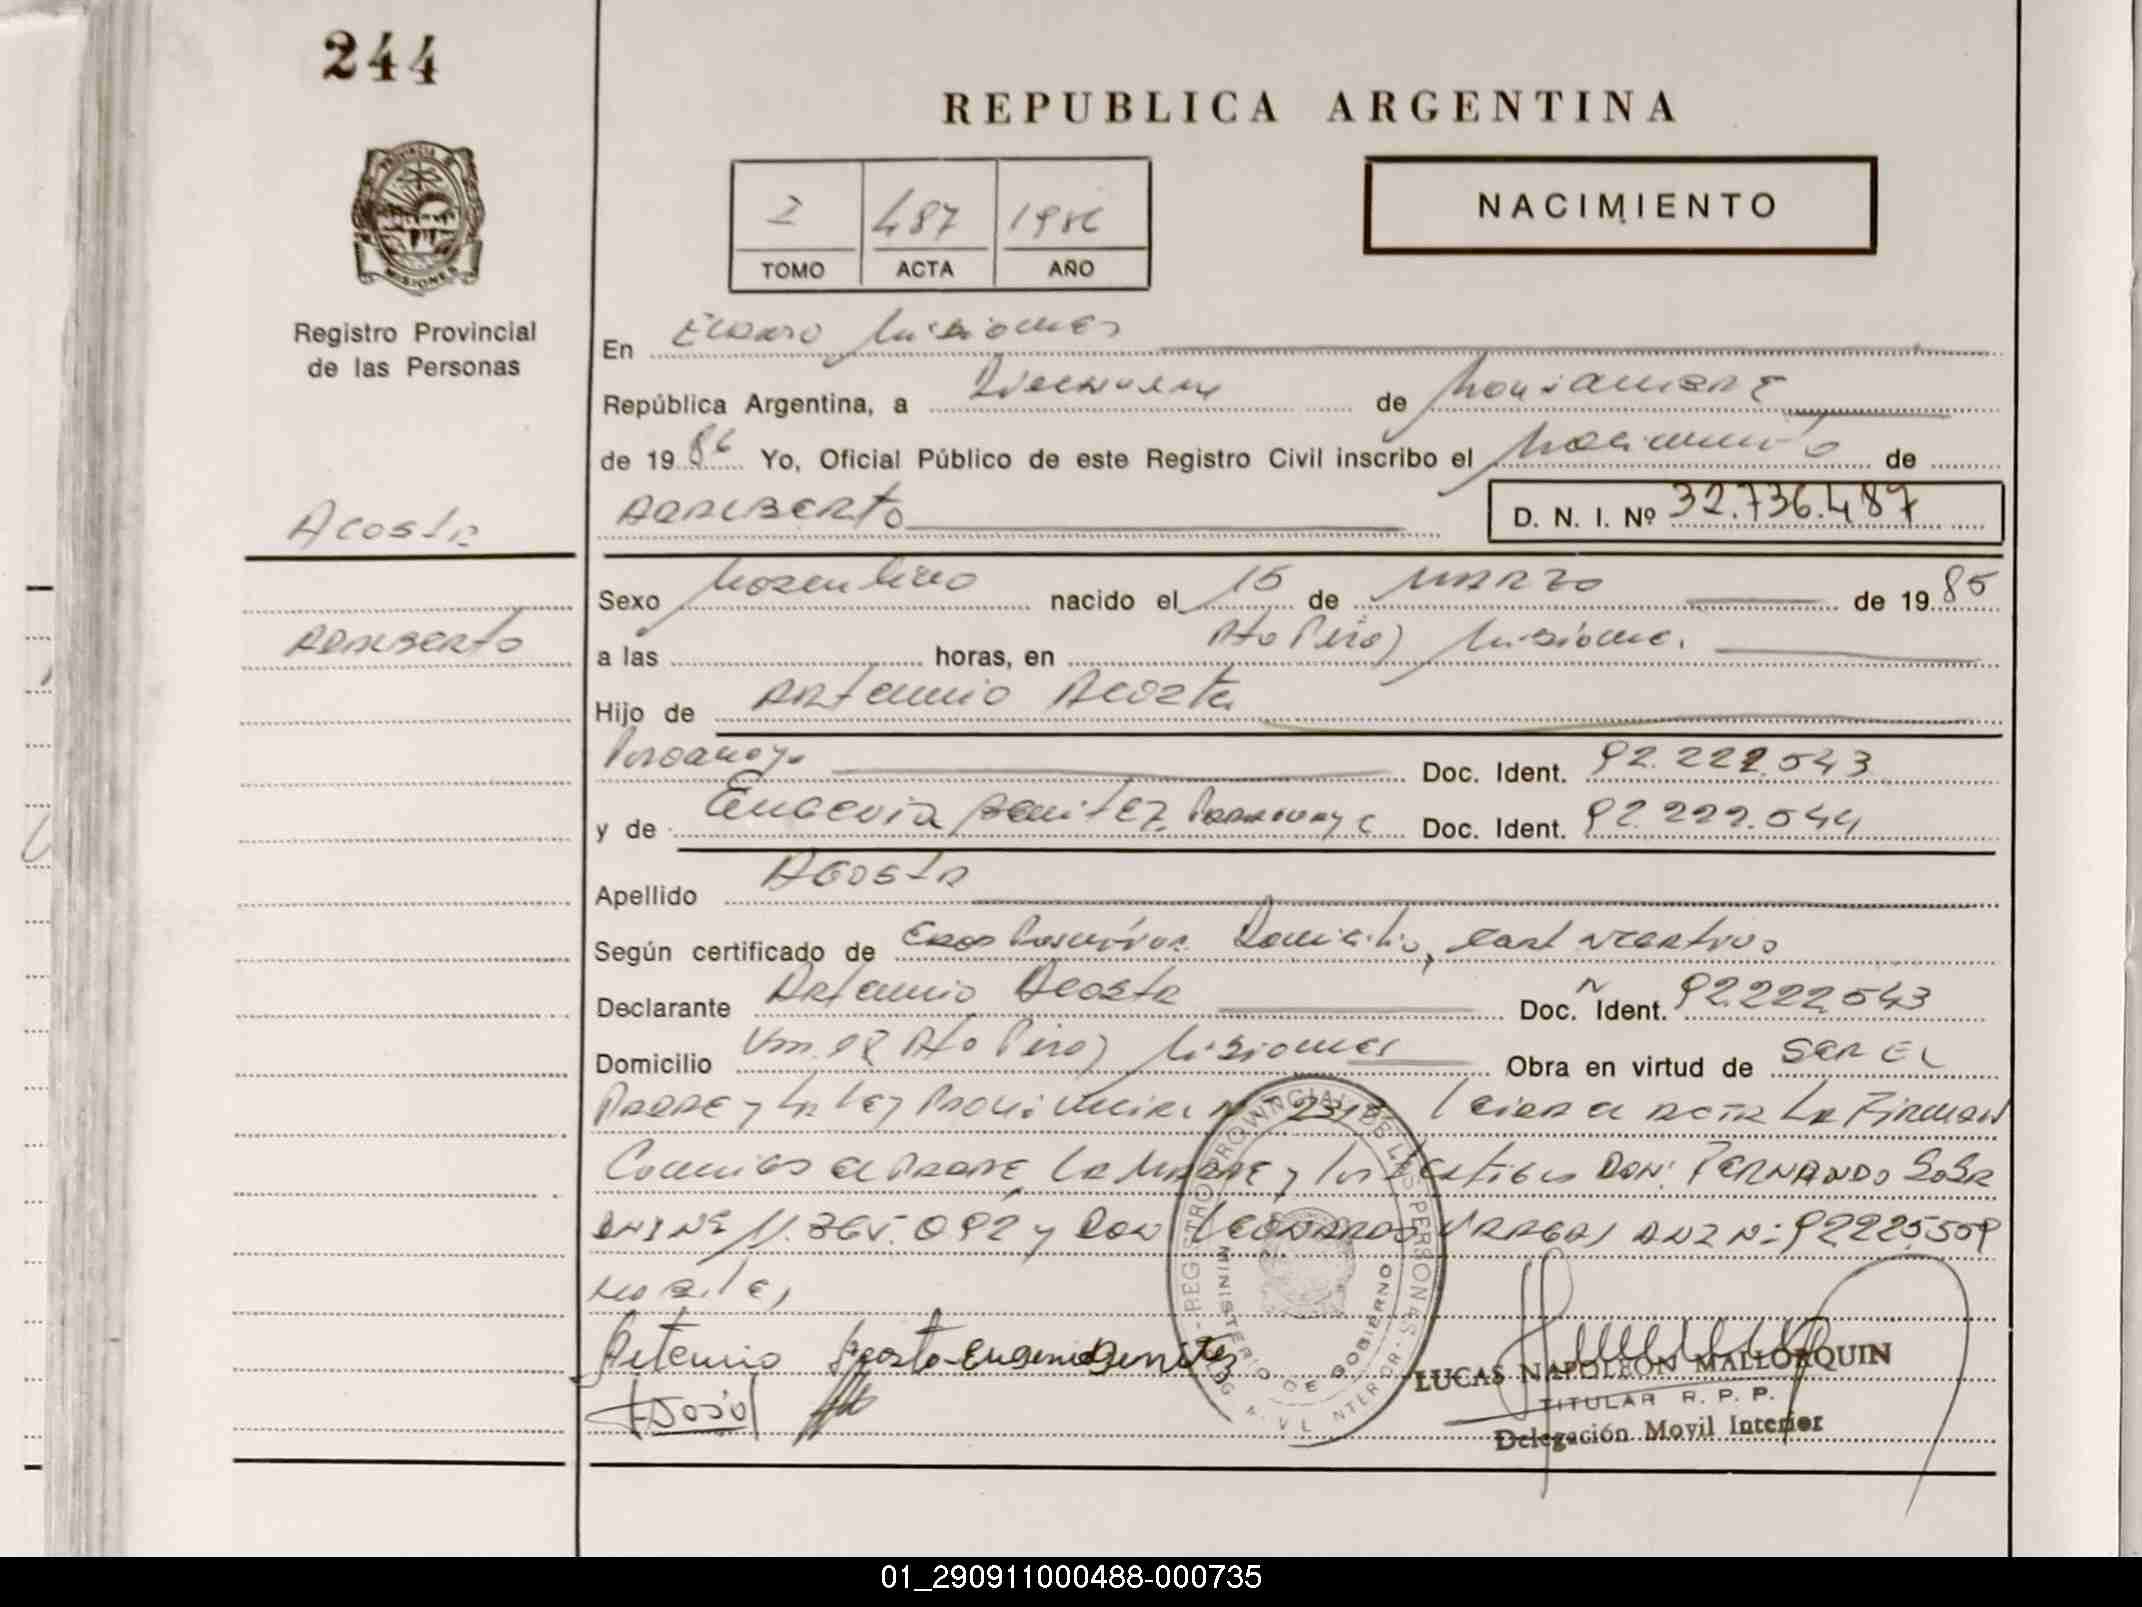 244
REPUBLICA ARGENTINA
NACIMIENTO
2 487 1986
TOMO ACTA AÑO
PROVINCIA DE
MISIONES
Registro Provincial
de las Personas
En Eldorado Misiones
República Argentina, a de
de 1986 Yo, Oficial Público de este Registro Civil inscribo el Nacimiento de
Acosta
ADALBERTO
D. N. I. Nº 32.736.487
Sexo Masculino nacido el 15 de MARZO de 1985
ADALBERTO
a las horas, en Misiones
Hijo de ARTemio Acosta
Doc. Ident. 92.222.543
y de Eugenia Benitez Doc. Ident. 92.222.544
Apellido Acosta
Según certificado de Domicilio,
Declarante Artemio Acosta Doc. Ident. 92.222.543
Domicilio Misiones Obra en virtud de SER EL
PADRE y la Ley Provincial Nº Leida el acta La Firman
Conmigo el PADRE, La MADRE y los testigos DON: FERNANDO SOSA
DNI Nº 11.365.092 y DON LEONARDO VARGAS DNI Nº 92225509
Artemio Acosta - Eugenia Benitez
REGISTRO PROVINCIAL DE LAS PERSONAS
MINISTERIO DE GOBIERNO
LUCAS NAPOLEON MALLORQUIN
TITULAR R. P. P.
Delegación Movil Interior
01_290911000488-000735